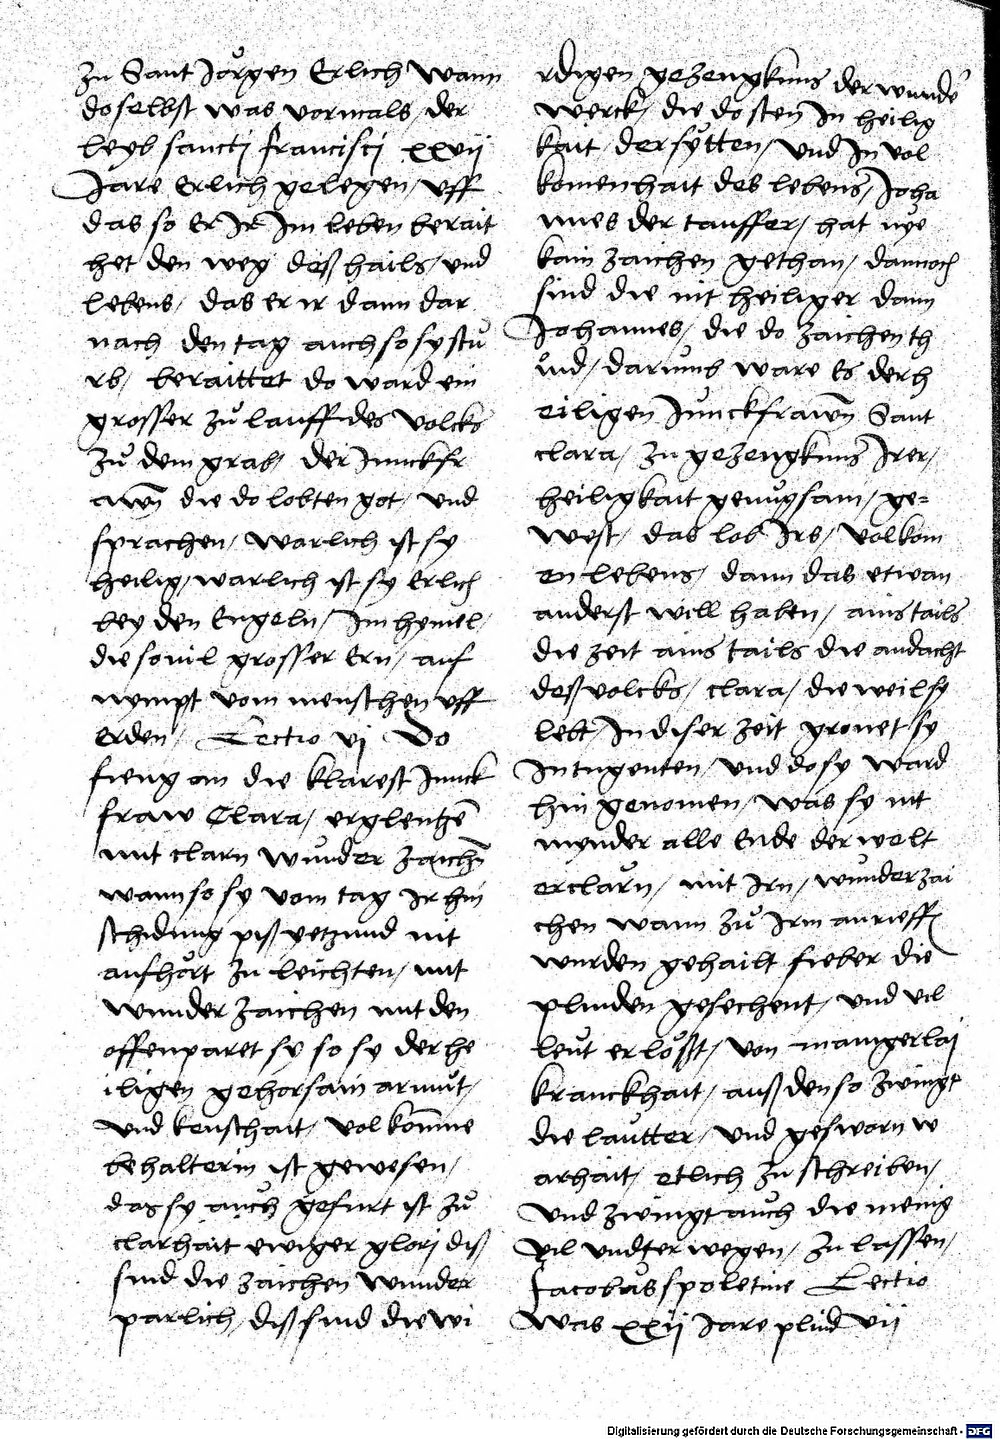 zu Sant Jörgen Erlich wann
doselbst was vormals, der
leyb sancti francisci xxvij
Jare Erlich gelegen, uff
das so Er Ir Im leben berait
het den weg deß hails, und
lebens, das er ir dann dar
nach den tag auch so sy stu
rb, beraittet do ward ein
grosser zu lauff des volcks
zu dem grab, der Junckfr
awn die do lobten got, und
sprachen, warlich ist sy
heilig, warlich ist sy Erlich
bey den Engeln, Im hymel,
die sovil grosser Ern, auf
nympt vom menschen uff
erden, Lectio vj Do
fieng an die klarest Junck
fraw Clara, erglentzē
mit clarn wunder zaichn̄
wann so sy vom tag ir hin
schidung piß yetzund nit
aufhört zu leichten, mit
wunder zaichen mit den
offenparet sy so sy der he
iligen gehorsam armut,
und keuschait, volkom̄ne
behalterin ist gewesen,
das sy auch gefurt ist zu
clarhait ewiger glorj diß
sind die zaichen wunder
parlich, diß sind die wi
rdigen gezengknus der wunde
werck, die do sten In heilig
kait der sytten, und In vol
komenhait des lebens, Joha
nnes der tauffer, hat nye
kain zaichen gethan, dannoch
sind die nit heiliger dann
Johannes, die do zaichen th
und, darumb ware Es der h
eiligen Junckfrawn̄ Sant
clara, zu gezengknus Irer,
heiligkait genugsam, ge=
west, das lob Irs, volkom
en lebens, dann das etwan
anderst will haben, ains tails
die zeit ains tails die andacht
deß volcks, clara, die weil sy
lebt, In diser zeit gronet sy
In tugenten, und do sy ward
hin genomen, was sy nit
mynder alle Ende der welt
erclarn, mit Irn, wunderzai
chen wann zu Irm anrieffn
wurden gehailt fieber die
plinden gesechent, und vil
leut erlößt, von mangerlaj
kranckhait, auß den so zwingt
die lautter, und gesworn w
arhait, etlich zu schreiben,
und zwingt auch die menig
vil undter wegen, zu lassen,
Jacobus spoletine Lectio
Was xxij Jare plind vij
Digitalisierung gefördert durch die Deutsche Forschungsgemeinschaft - DFG